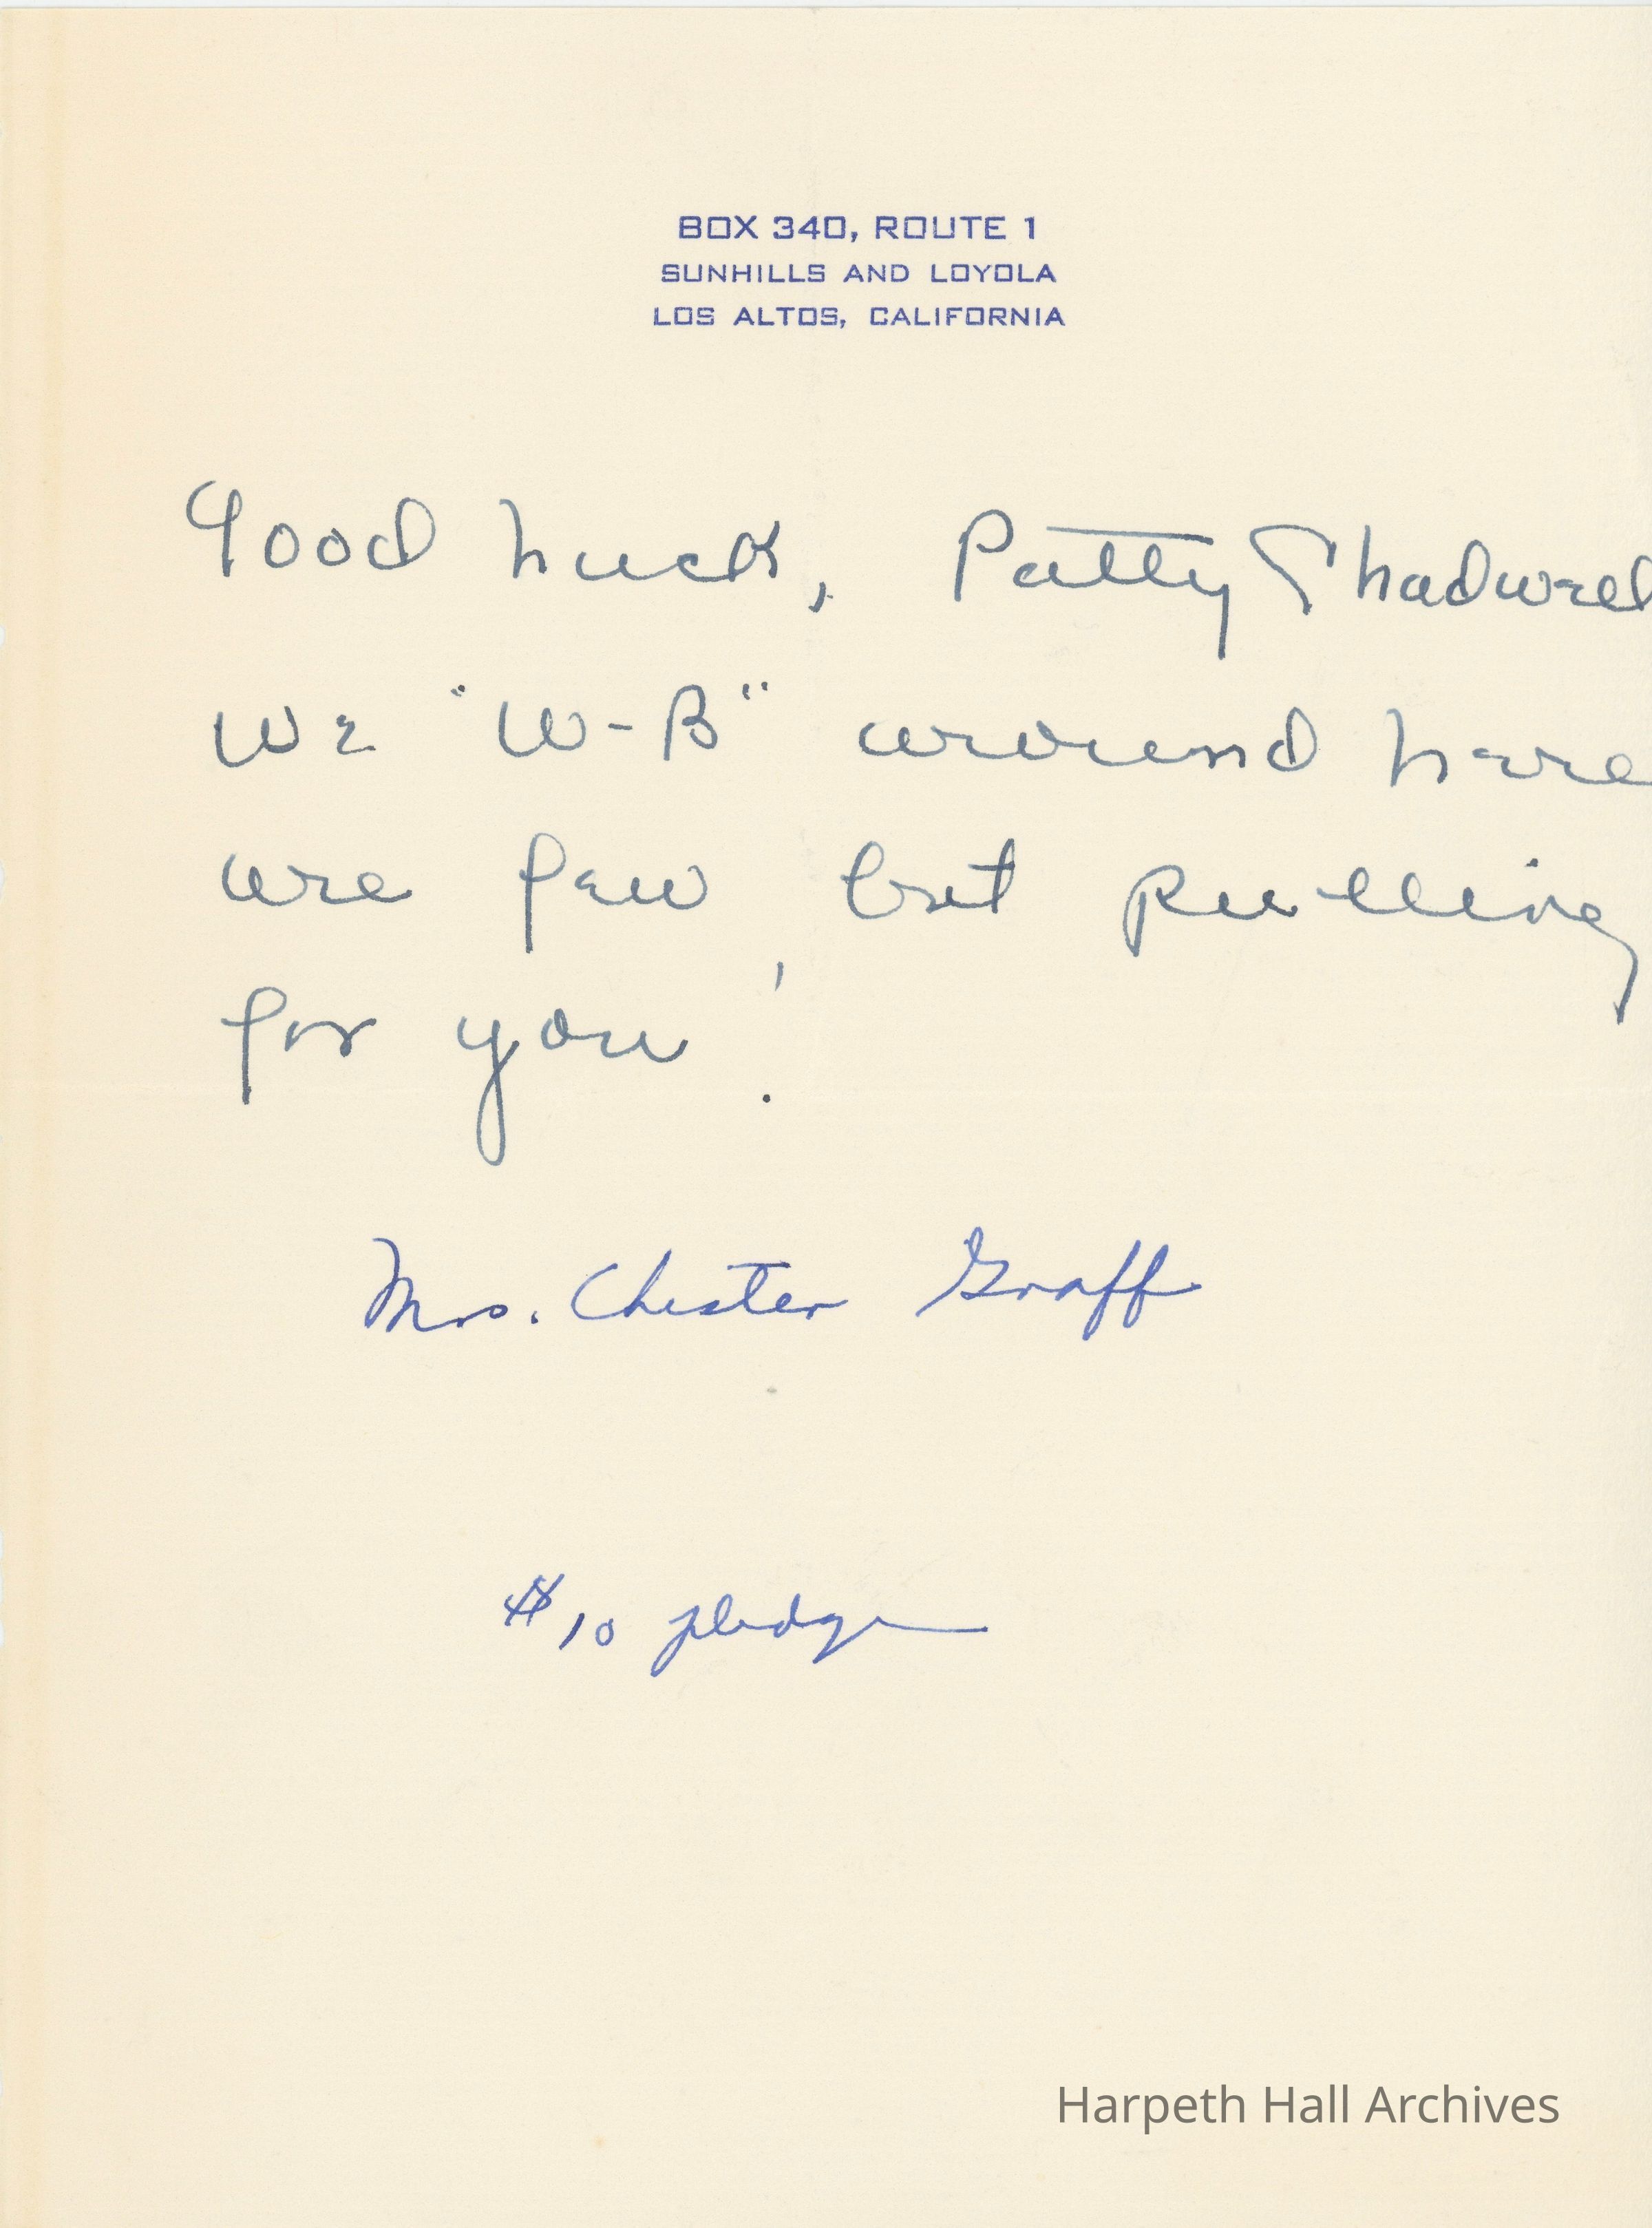 BOX 340, ROUTE 1
SUNHILLS AND LOYOLA
LOS ALTOS, CALIFORNIA
Good Luck, Patty Chadwell
We "W-B" around here
are few, but pulling
for you!
Mrs. Chester Graff
$10 pledge
Harpeth Hall Archives